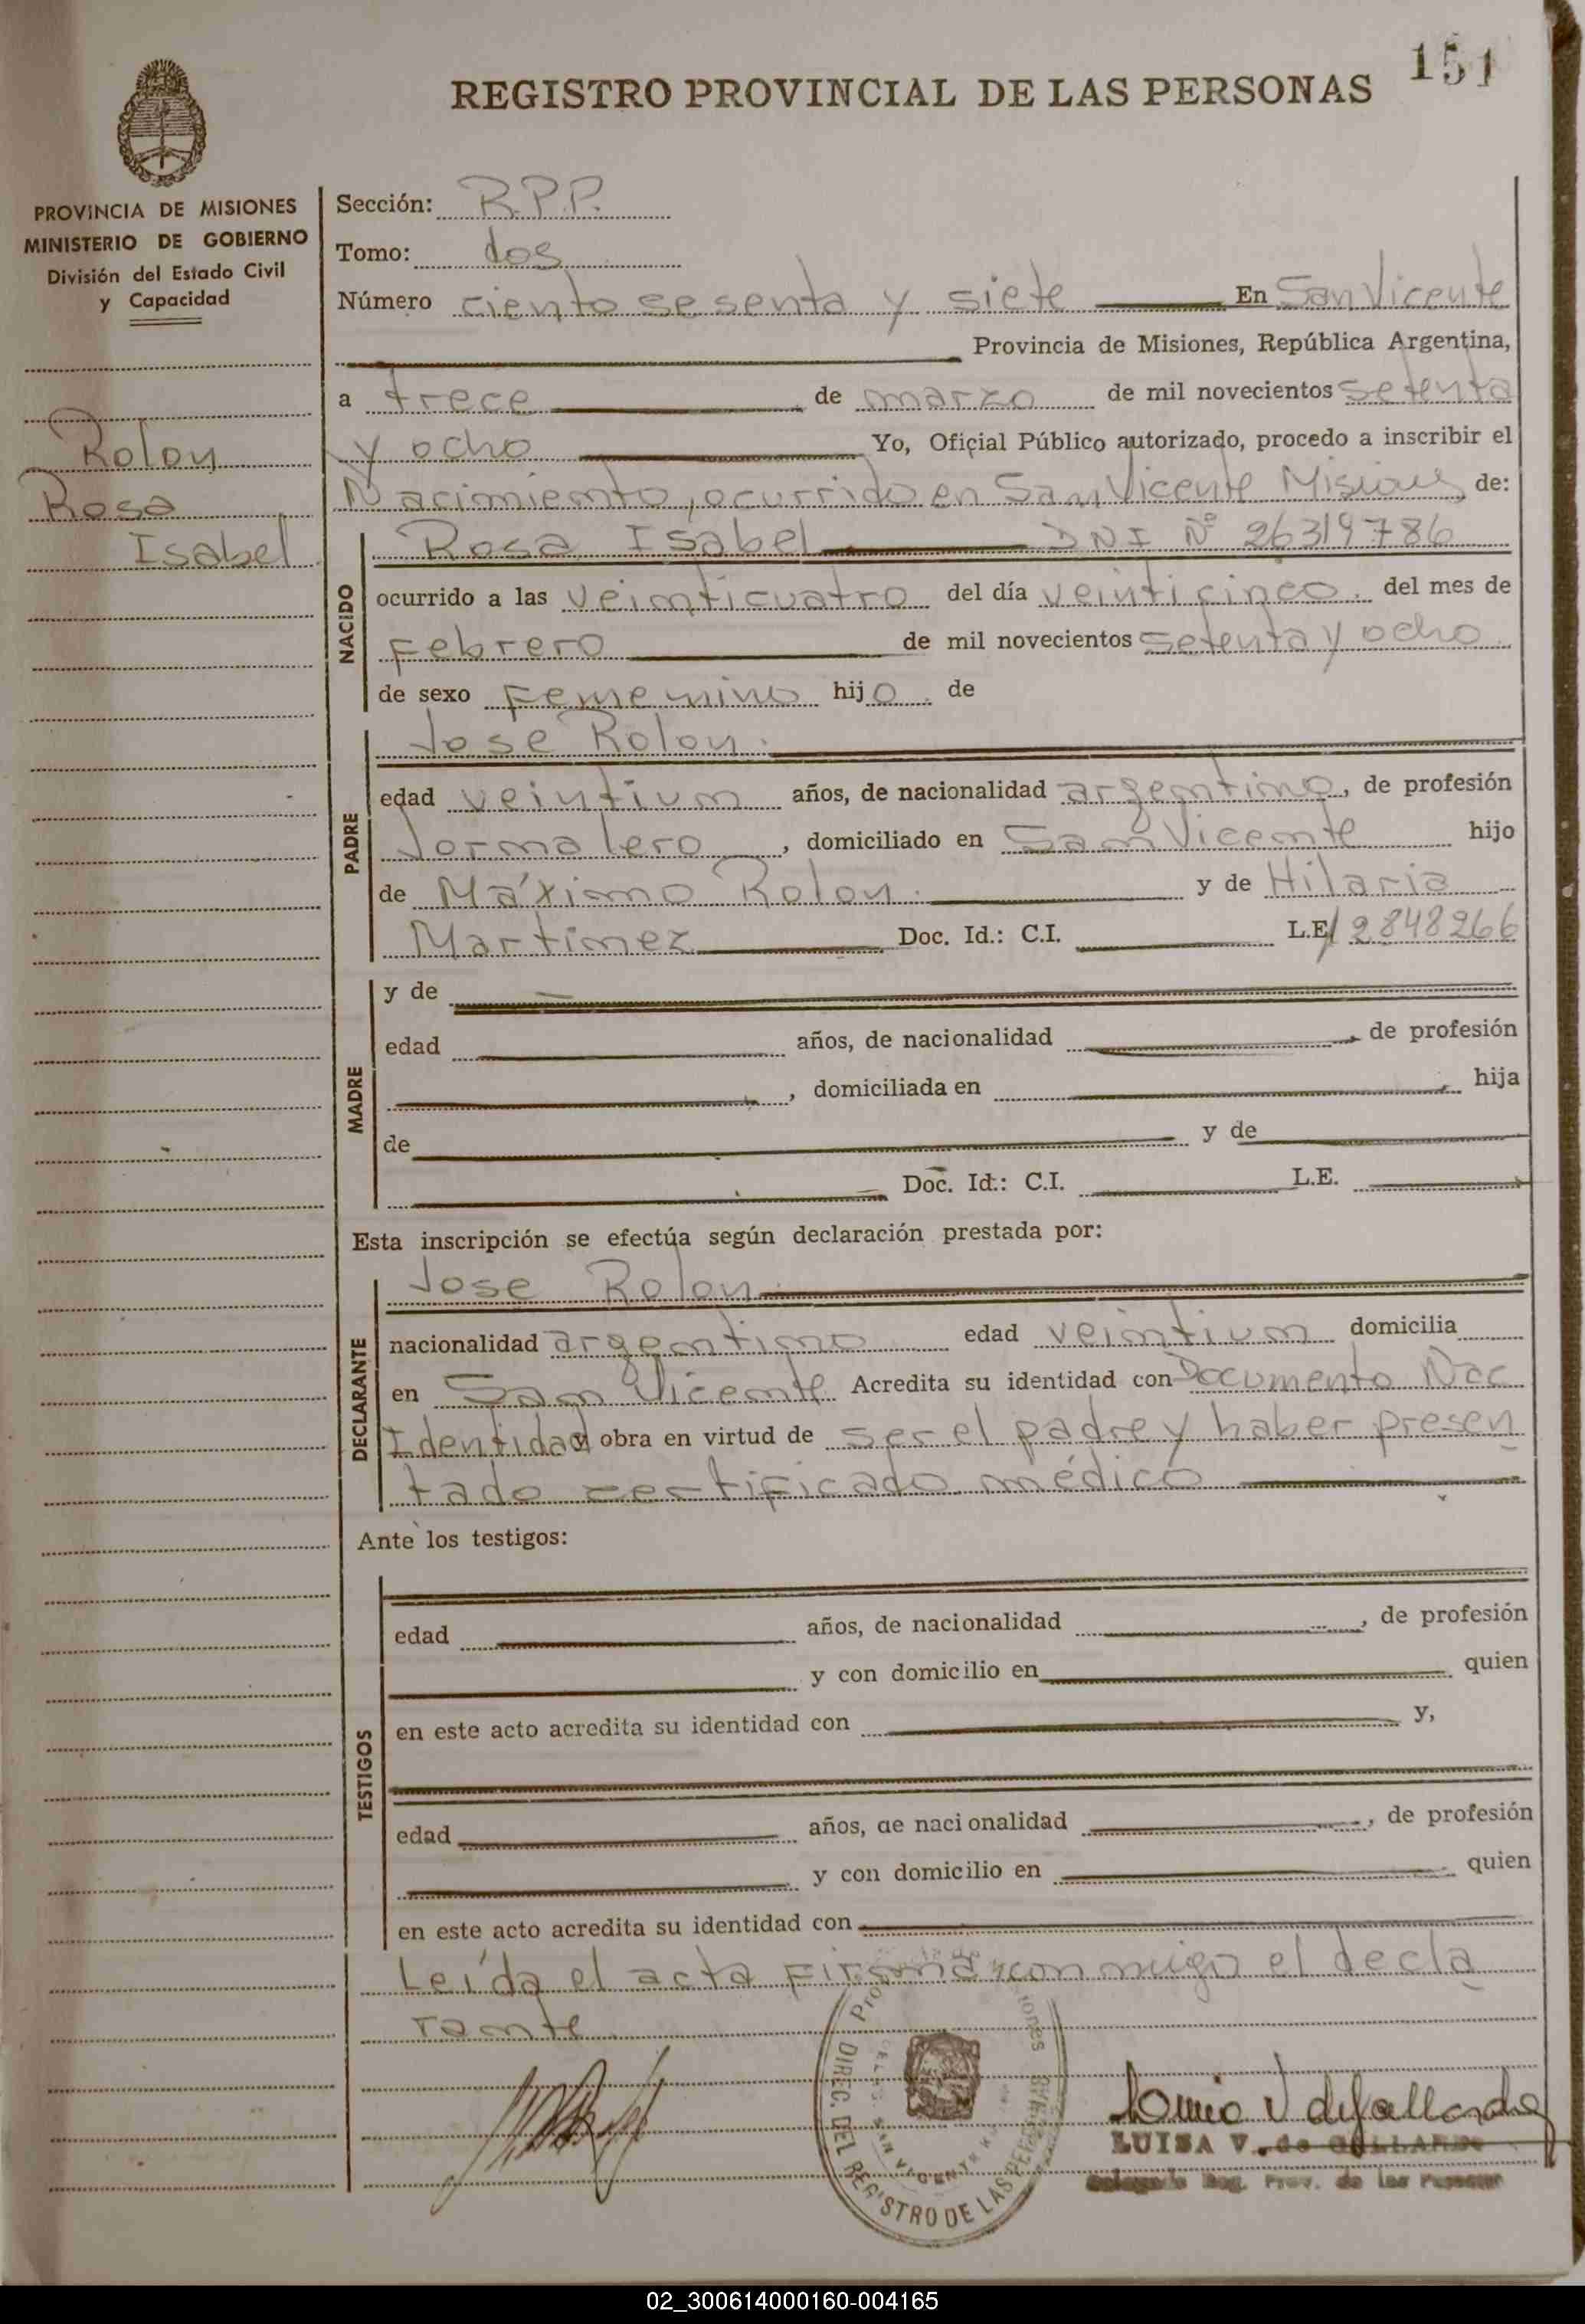 151
REGISTRO PROVINCIAL DE LAS PERSONAS
PROVINCIA DE MISIONES
MINISTERIO DE GOBIERNO
División del Estado Civil
y Capacidad
Rolon
Rosa
Isabel
Sección: R.P.P.
Tomo: dos
Número ciento sesenta y siete En San Vicente
Provincia de Misiones, República Argentina,
a trece de marzo de mil novecientos setenta
y ocho Yo, Oficial Público autorizado, procedo a inscribir el
Nacimiento, ocurrido en San Vicente Misiones de:
NACIDO
Rosa Isabel DNI Nº 26319786
ocurrido a las veinticuatro del día veinticinco. del mes de
Febrero de mil novecientos setenta y ocho
de sexo Femenino hijo de
PADRE
Jose Rolon.
edad veintiun años, de nacionalidad argentino, de profesión
Jornalero, domiciliado en San Vicente hijo
de Máximo Rolon. y de Hilaria
Martinez Doc. Id.: C.I. L.E/ 2848266
MADRE
y de
edad años, de nacionalidad , de profesión
, domiciliada en hija
de y de
Doc. Id.: C.I. L.E.
Esta inscripción se efectúa según declaración prestada por:
DECLARANTE
Jose Rolon
nacionalidad argentino edad veintiun domicilia
en San Vicente Acredita su identidad con Documento Nac
Identidad obra en virtud de ser el padre y haber presen
tado certificado médico
Ante los testigos:
TESTIGOS
edad años, de nacionalidad , de profesión
y con domicilio en quien
en este acto acredita su identidad con y,
edad años, de nacionalidad , de profesión
y con domicilio en quien
en este acto acredita su identidad con
Leída el acta firma conmigo el decla
rante
DIREC. DEL REGISTRO DE LAS PER
LUISA V. de GALLARDO
Reg. Prov. de las Personas
02_300614000160-004165